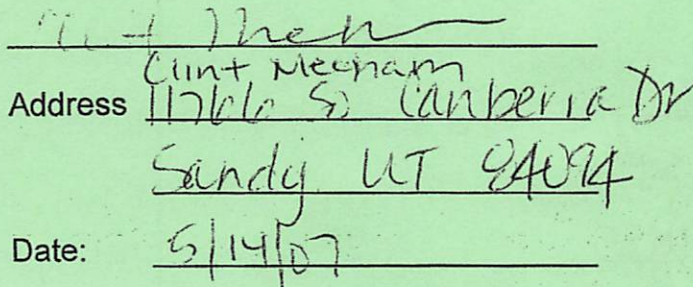 Clint Mecham
Address 11766 So Canberra Dr
Sandy UT 84094
Date: 5/14/07